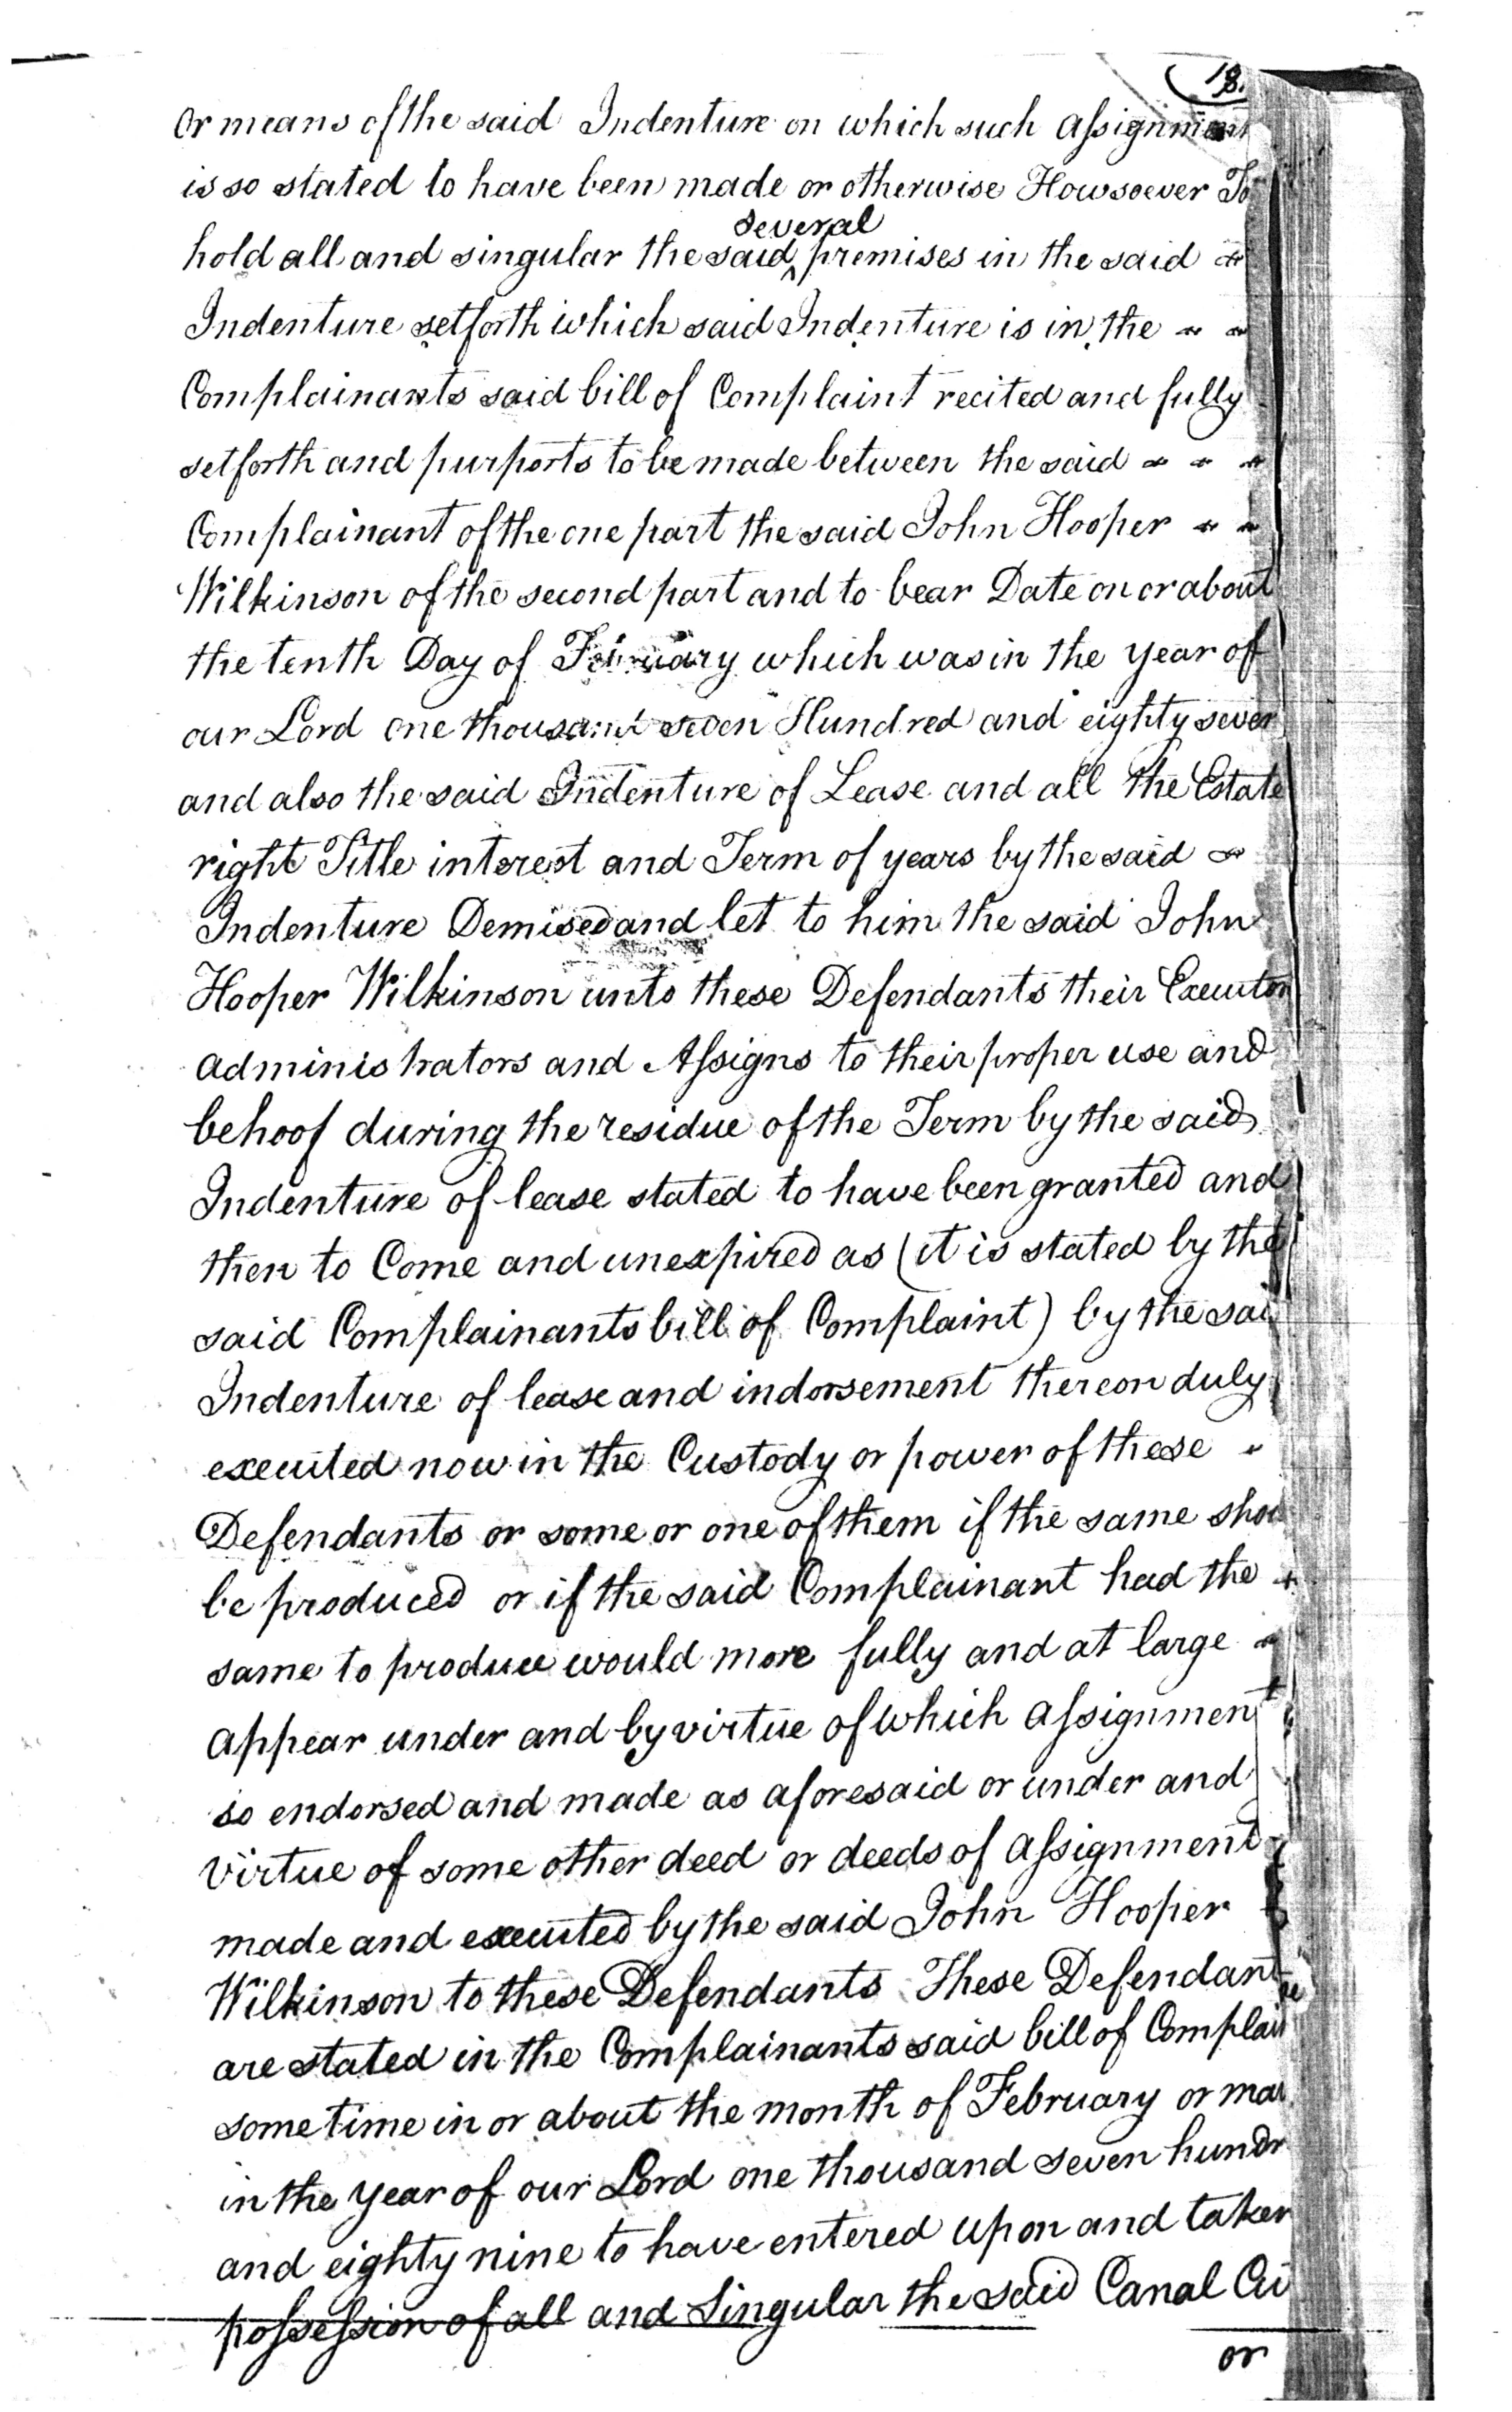 18.
or means of the said Indenture on which such assignment
is so stated to have been made or otherwise Howsoever To
hold all and singular the said ^several premises in the said
Indenture setforth which said Indenture is in the
Complainants said bill of Complaint recited and fully
setforth and purports to be made between the said
Complainant of the one part the said John Hooper
Wilkinson of the second part and to bear Date on or about
the tenth Day of February which was in the year of
our Lord one thousand seven Hundred and eighty seven
and also the said Indenture of Lease and all the Estate
right Title interest and Term of years by the said
Indenture Demised and let to him the said John
Hooper Wilkinson unto these Defendants their Executors
administrators and Assigns to their proper use and
behoof during the residue of the Term by the said
Indenture of lease stated to have been granted and
then to Come and unexpired as (it is stated by the
said Complainants bill of Complaint) by the said
Indenture of lease and indorsement thereon duly
executed now in the Custody or power of these
Defendants or some or one of them if the same shou
be produced or if the said Complainant had the
same to produce would more fully and at large
appear under and by virtue of which assignment
so endorsed and made as aforesaid or under and
virtue of some other deed or deeds of assignment
made and executed by the said John Hooper
Wilkinson to these Defendants These Defendant
are stated in the Complainants said bill of Complain
some time in or about the month of February or mar
in the year of our Lord one thousand seven hundr
and eighty nine to have entered upon and taken
possession of all and Singular the said Canal Cu
or